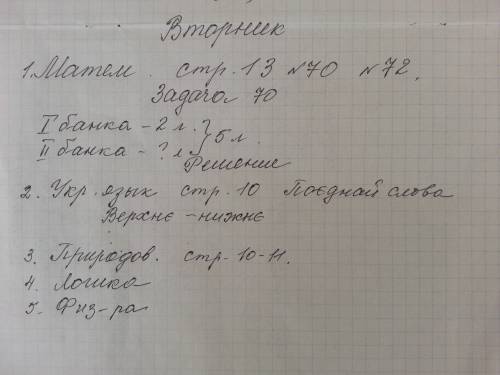 Вторник
1. Матем. стр. 13 №70 №72.
Задача 70
I банка - 2 л. } 5 л.
II банка - ? л
Решение
2. Укр. язык стр. 10 Поєднай слова
Верхнє - нижнє
3. Природов. стр. 10-11.
4. Логика
5. Физ-ра